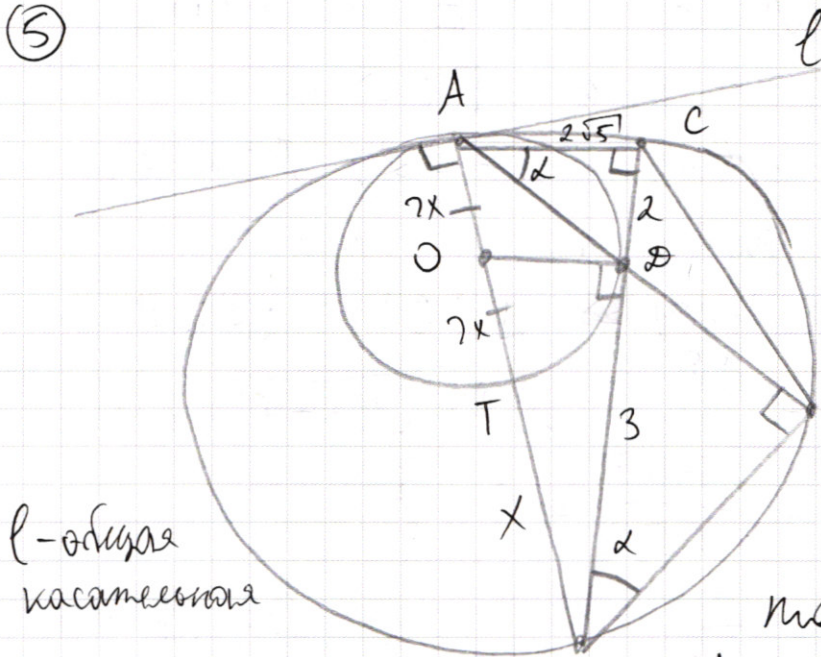 ⑤
l
A
2√5
C
α
2x
2
O
D
2x
T
3
x
α
l - общая
касательная